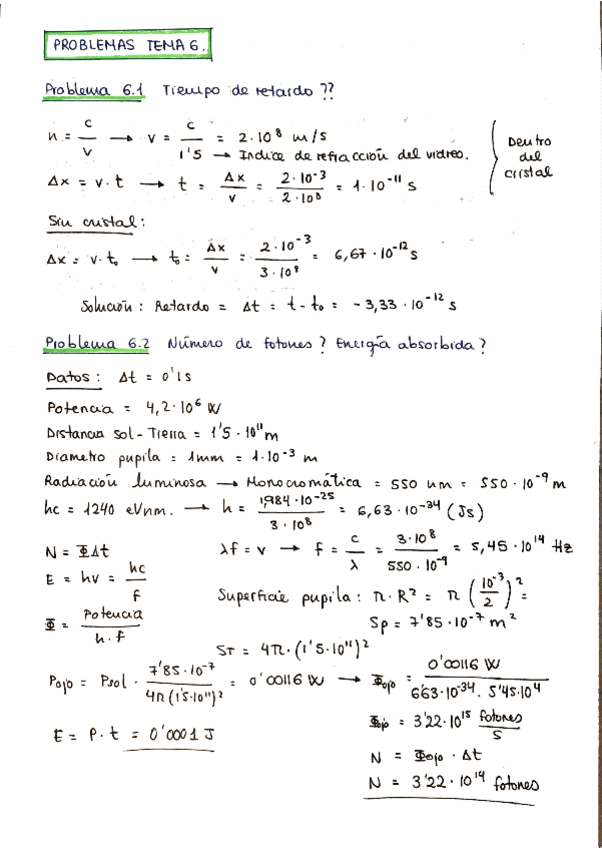 PROBLEMAS TEMA 6.
Problema 6.1 Tiempo de retardo ??
n = c/v → v = c/1'5 = 2·10⁸ m/s
1'5 → Indice de refracción del vidreo.
Dentro del cristal
Δx = v·t → t = Δx/v = 2·10⁻³/2·10⁸ = 1·10⁻¹¹ s
Sin cristal:
Δx = v·t₀ → t₀ = Δx/v = 2·10⁻³/3·10⁸ = 6,67·10⁻¹² s
Solución: Retardo = Δt = t - t₀ = -3,33·10⁻¹² s
Problema 6.2 Número de fotones? Energía absorbida?
Datos: Δt = 0'1s
Potencia = 4,2·10⁶ W
Distancia sol-Tierra = 1'5·10¹¹ m
Diametro pupila = 1mm = 1·10⁻³ m
Radiación luminosa → Monocromática = 550 nm = 550·10⁻⁹ m
hc = 1240 eVnm. → h = 1,984·10⁻²⁵/3·10⁸ = 6,63·10⁻³⁴ (Js)
N = ΦΔt
λf = v → f = c/λ = 3·10⁸/550·10⁻⁹ = 5,45·10¹⁴ Hz
E = hν = hc/f
Superficie pupila: π·R² = π (10⁻³/2)² =
Sp = 7'85·10⁻⁷ m²
Φ = Potencia/h·f
ST = 4π·(1'5·10¹¹)²
Pojo = Psol · 7'85·10⁻⁷/4π(1'5·10¹¹)² = 0'00116 W → Φojo = 0'00116 W/6'63·10⁻³⁴·5'45·10⁴
Φojo = 3'22·10¹⁵ fotones/s
E = P·t = 0'0001 J
N = Φojo · Δt
N = 3'22·10¹⁴ fotones